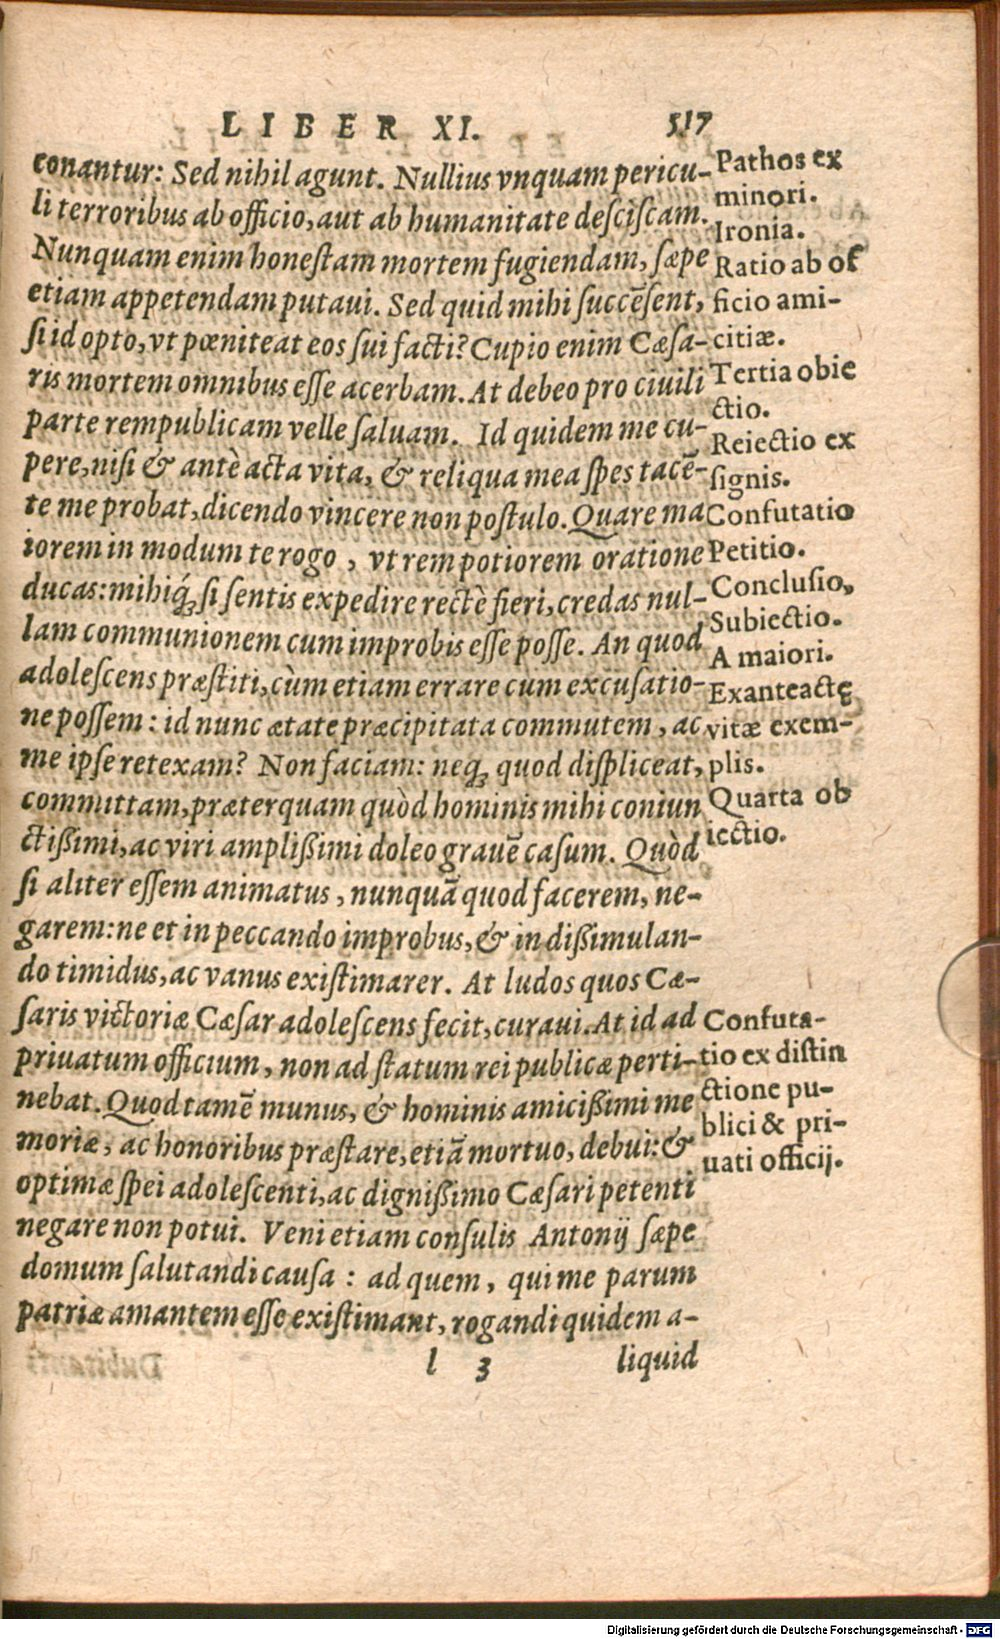 LIBER XI. 517
conantur: Sed nihil agunt. Nullius vnquam pericu-
li terroribus ab officio, aut ab humanitate desciscam.
Nunquam enim honestam mortem fugiendam, sæpe
etiam appetendam putaui. Sed quid mihi succēsent,
si id opto, vt pœniteat eos sui facti? Cupio enim Cæsa-
ris mortem omnibus esse acerbam. At debeo pro ciuili
parte rempublicam velle saluam. Id quidem me cu-
pere, nisi & antè acta vita, & reliqua mea spes tacē-
te me probat, dicendo vincere non postulo. Quare ma
iorem in modum te rogo, vt rem potiorem oratione
ducas: mihiq́; si sentis expedire rectè fieri, credas nul-
lam communionem cum improbis esse posse. An quod
adolescens præstiti, cùm etiam errare cum excusatio-
ne possem: id nunc ætate præcipitata commutem, ac
me ipse retexam? Non faciam: neq; quod displiceat,
committam, præterquam quòd hominis mihi coniun
ctißimi, ac viri amplißimi doleo grauē casum. Quòd
si aliter essem animatus, nunquā quod facerem, ne-
garem: ne et in peccando improbus, & in dißimulan-
do timidus, ac vanus existimarer. At ludos quos Cæ-
saris victoriæ Cæsar adolescens fecit, curaui. At id ad
priuatum officium, non ad statum rei publicæ perti-
nebat. Quod tamē munus, & hominis amicißimi me
moriæ, ac honoribus præstare, etiā mortuo, debui: &
optimæ spei adolescenti, ac dignißimo Cæsari petenti
negare non potui. Veni etiam consulis Antonij sæpe
domum salutandi causa: ad quem, qui me parum
patriæ amantem esse existimant, rogandi quidem a-
l 3 liquid
Pathos ex
minori.
Ironia.
Ratio ab of
ficio ami-
citiæ.
Tertia obie
ctio.
Reiectio ex
signis.
Confutatio
Petitio.
Conclusio,
Subiectio.
A maiori.
Exanteactę
vitæ exem-
plis.
Quarta ob
iectio.
Confuta-
tio ex distin
ctione pu-
blici & pri-
uati officij.
Digitalisierung gefördert durch die Deutsche Forschungsgemeinschaft - DFG